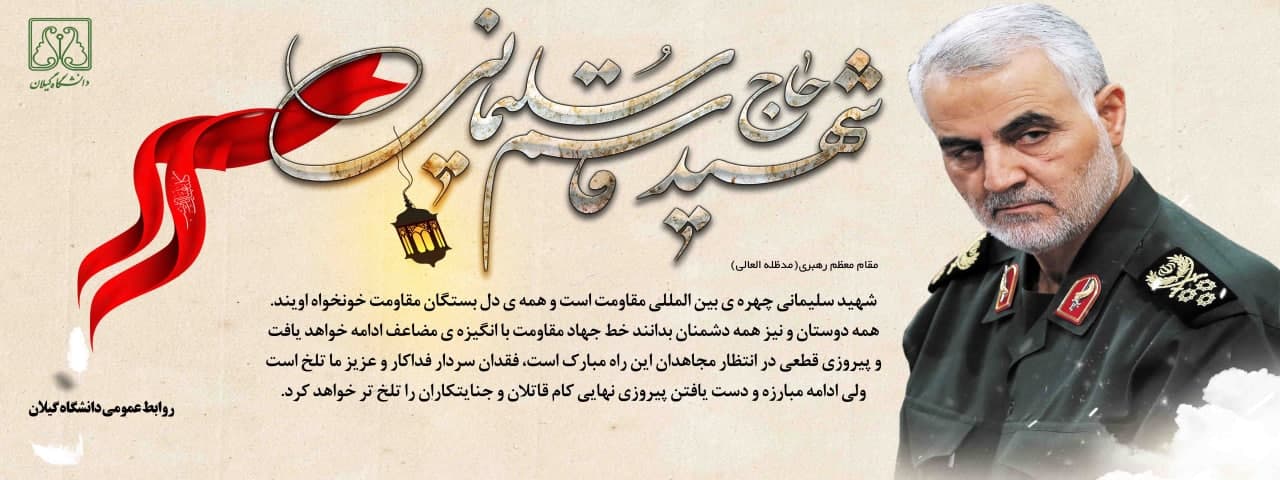 دانشگاه گیلان
شهید حاج قاسم سلیمانی
مقام معظم رهبری(مدظله العالی)
شهید سلیمانی چهره ی بین المللی مقاومت است و همه ی دل بستگان مقاومت خونخواه اویند.
همه دوستان و نیز همه دشمنان بدانند خط جهاد مقاومت با انگیزه ی مضاعف ادامه خواهد یافت
و پیروزی قطعی در انتظار مجاهدان این راه مبارک است، فقدان سردار فداکار و عزیز ما تلخ است
ولی ادامه مبارزه و دست یافتن پیروزی نهایی کام قاتلان و جنایتکاران را تلخ تر خواهد کرد.
روابط عمومی دانشگاه گیلان